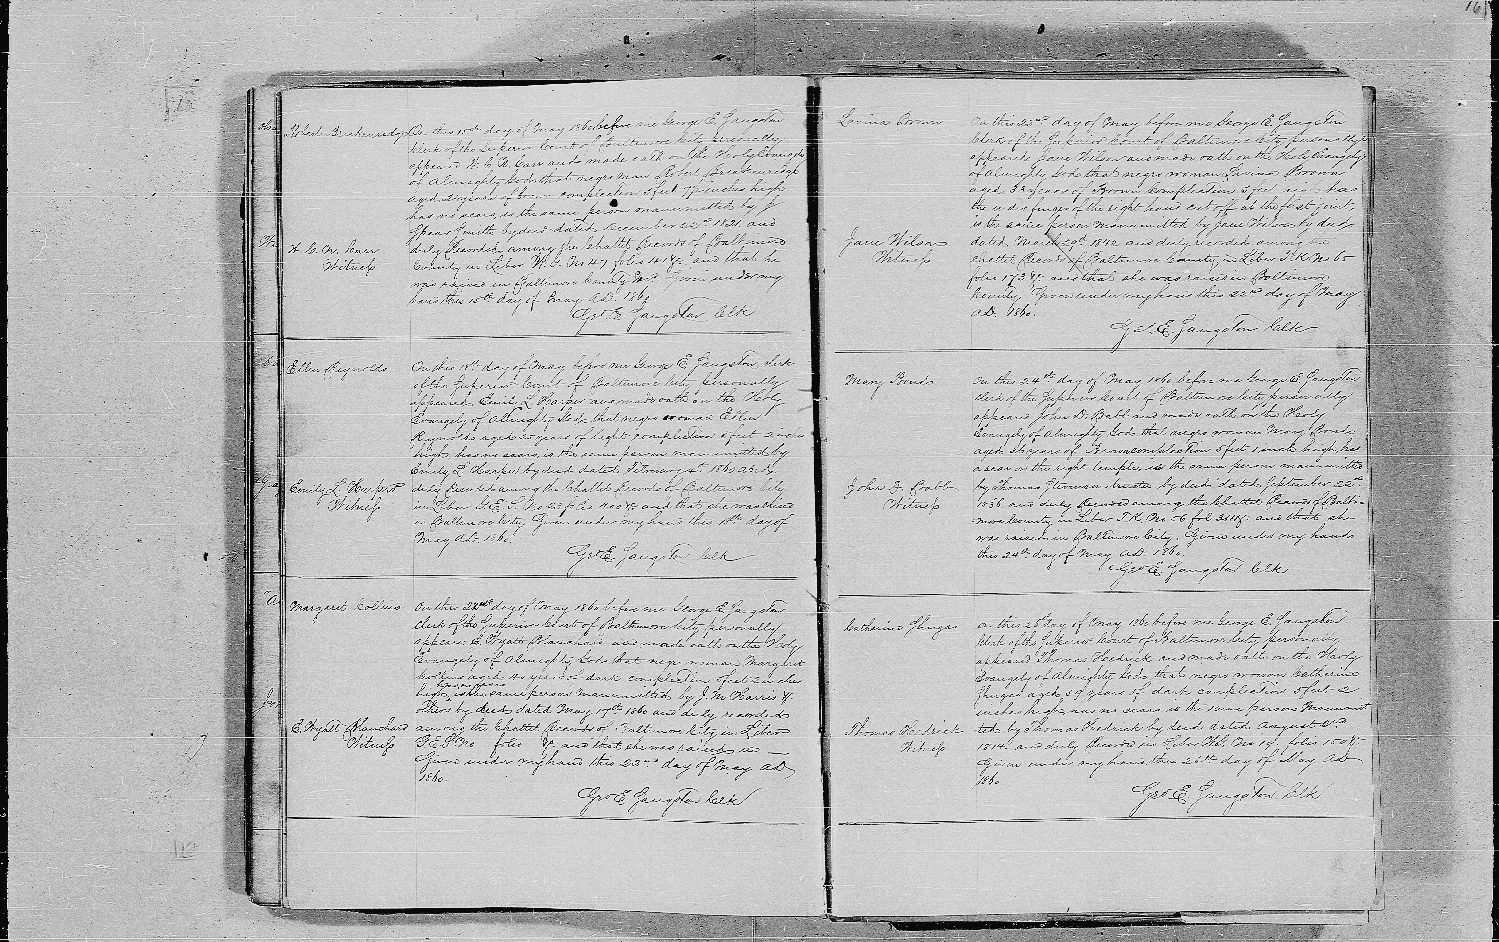 Robert Breckenridge
On this 15th day of May 1860 before me George E Gangston
Clerk of the Superior Court of Baltimore City personally
appeared W. C. N. Carr and made oath on the Holy Evangely
of Almighty God, that negro man Robert Breckenridge
aged years of brown complexion 5 feet 7½ inches high
has no scars, is the same person manumitted by J
Spear Smith by deed dated December 22nd 1831 and
duly Recorded among the Chattel Records of Baltimore
County in Liber W. G. No 47 folio 141 &c and that he
was raised in Baltimore County Md. Given under my
hand this 15th day of May Ad. 1860
Geo E Gangston Clk
W. C. N. Carr
Witness
Ellen Reynolds
On this 18th day of May before me George E Gangston, Clerk
of the Superior Court of Baltimore City personally
appeared Emily L Harper and made oath on the Holy
Evangely of Almighty God, that negro woman Ellen
Reynolds aged years of light complexion 5 feet 2 inches
high, has no scars, is the same person manumitted by
Emily L Harper by deed dated February 4th 1860 and
duly Recorded among the Chattel Records of Baltimore City
in Liber G.E.G. No folio 400 &c and that she was raised
in Baltimore City. Given under my hand this 18th day of
May Ad. 1860.
Geo E Gangston Clk
Emily L Harper
Witness
Margaret Collins
On this 22nd day of May 1860 before me George E Gangston
Clerk of the Superior Court of Baltimore City personally
appears E Wyatt Blanchard and made oath on the Holy
Evangely of Almighty God, that negro woman Margaret
Collins aged 40 years of dark complexion 5 feet 2 inches
high, has no scars is the same person manumitted by J. M. Harris &
others by deed dated May 17th 1860 and duly recorded
among the Chattel Records of Baltimore City in Liber
G.E.G No folio &c and that she was raised in —
Given under my hand this 22nd day of May Ad
1860
Geo E Gangston Clk
E. Wyatt Blanchard
Witness
Lavinia Brown
On this 22nd day of May before me George E. Gangston
Clerk of the Superior Court of Baltimore City personally
appeared Jane Wilson and made oath on the Holy Evangely
of Almighty God, that negro woman Lavinia Brown
aged 33 years of Brown complexion 5 feet high has
the finger of the right hand cut off at the first joint,
is the same person manumitted by Jane Wilson by deed
dated March 29th 1842 and duly recorded among the
Chattel Records of Baltimore County in Liber T.K. No 65
folio 173 &c and that she was raised in Baltimore
County. Given under my hand this 22nd day of May
AD. 1860.
Geo. E. Gangston Clk
Jane Wilson
Witness
Mary Bond
On this 24th day of May 1860 before me George E. Gangston
Clerk of the Superior Court of Baltimore City personally
appears John D. Babb and made oath on the Holy
Evangely of Almighty God, that negro woman Mary Bond
aged years of Brown complexion 5 feet 1 inch high, has
a scar on the right temple, is the same person manumitted
by Thomas by deed dated September 22nd
1836 and duly Recorded among the Chattel Records of Balti-
more County in Liber T.K. No 56 fol &c. and that she
was raised in Baltimore City. Given under my hand
this 24th day of May AD. 1860.
Geo E Gangston Clk
John D. Babb
Witness
Catharine
On this 26 day of May 1860 before me George E. Gangston
Clerk of the Superior Court of Baltimore City personally
appeared Thomas Hedrick and made oath on the Holy
Evangely of Almighty God, that negro woman Catharine
aged 59 years of dark complexion 5 feet 2
inches high, has no scars is the same person Manumit
ted by Thomas Hedrick by deed dated August
1814 and duly Recorded in Liber W.G. No 19 folio 150 &c.
Given under my hand this 26th day of May AD
1860
Geo E Gangston Clk
Thomas Hedrick
Witness